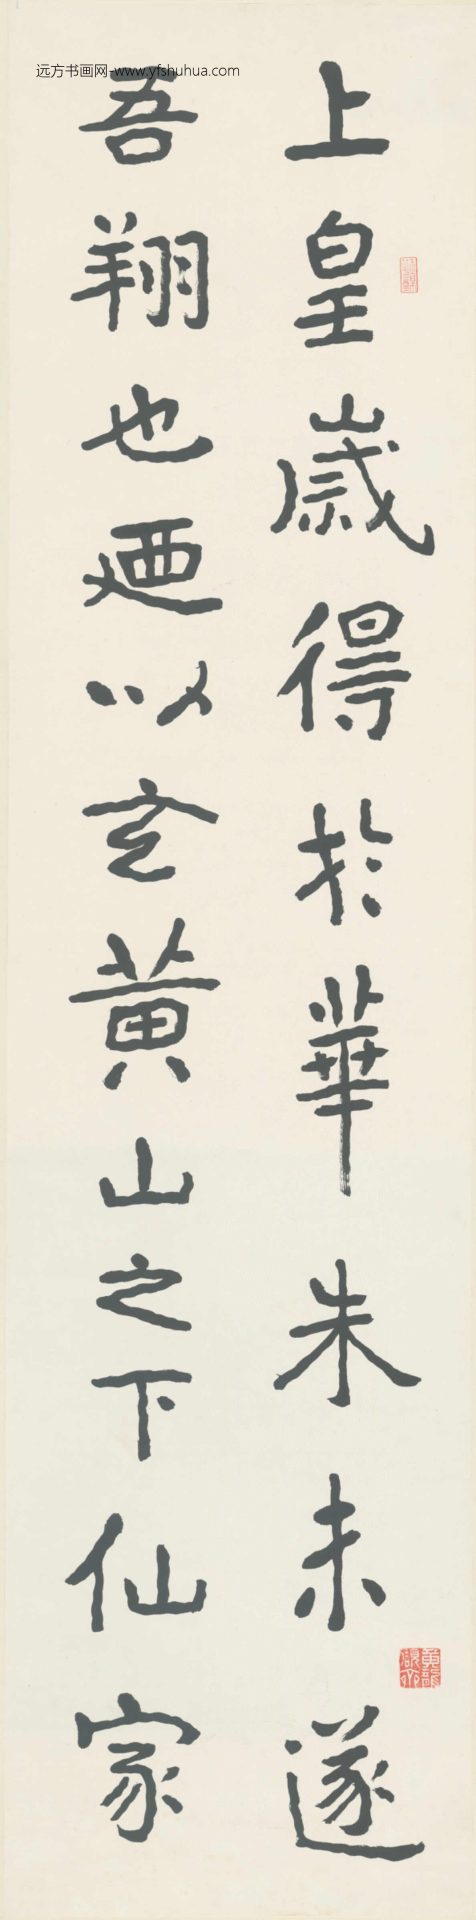 远方书画网-www.yfshuhua.com
上皇歲得於華朱未遂
吾翔也廼以玄黃山之下仙家